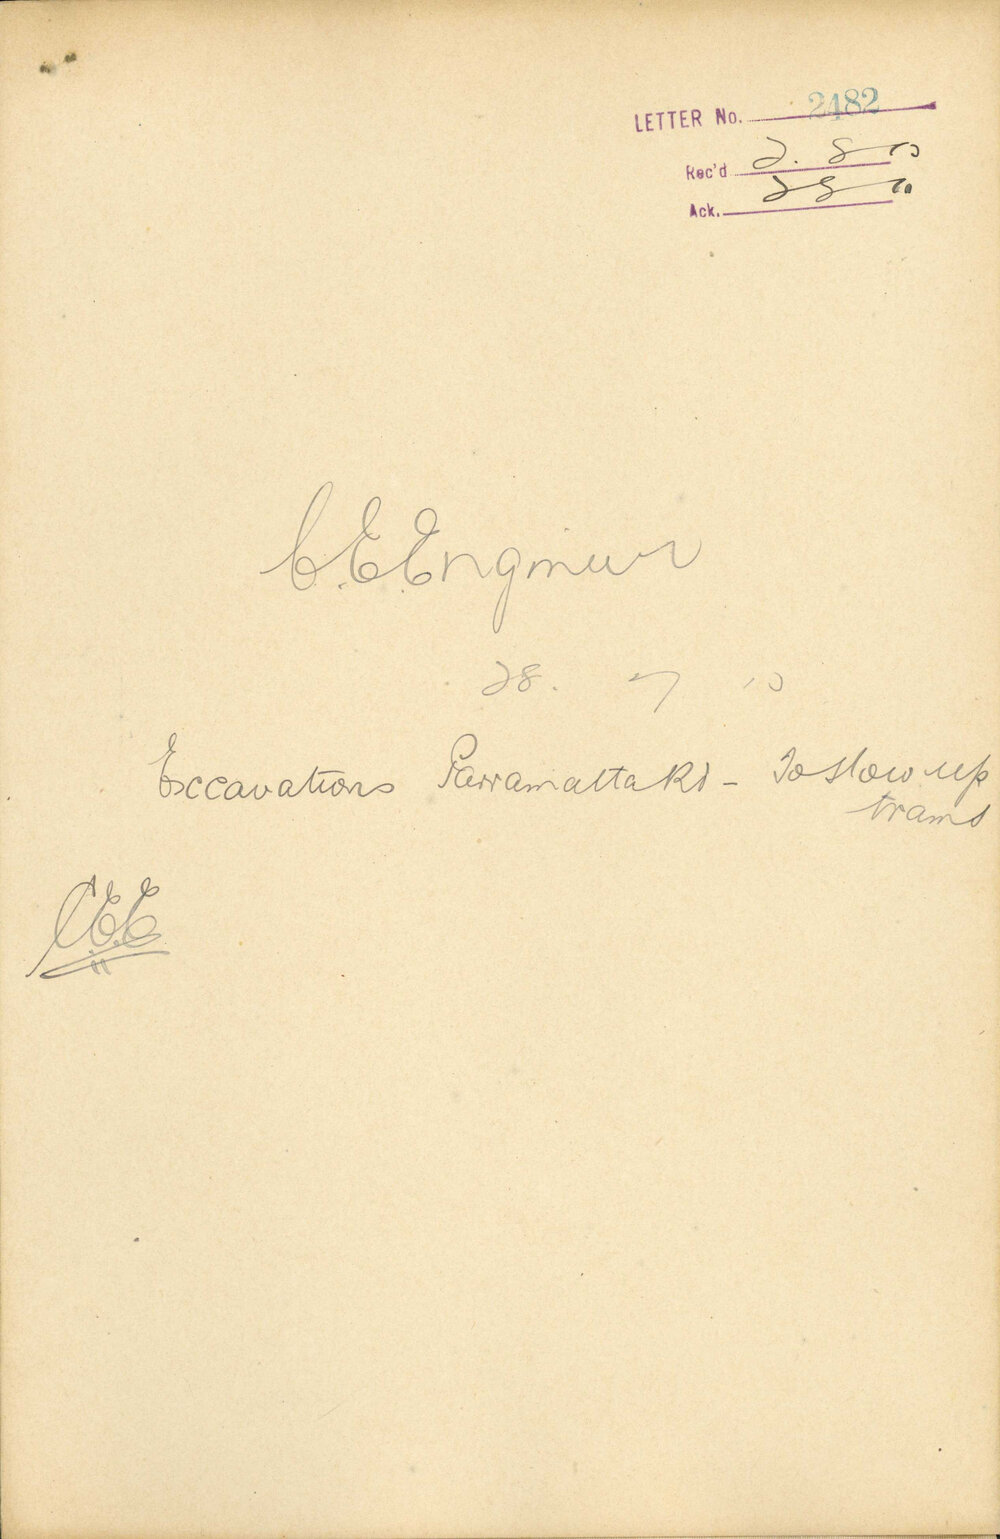 LETTER No. 2482
Rec'd 2. 8 10
Ack. 2 8 10
C. E. Engineer
28. 7 10
Exccavations Parramatta Rd - To slow up
trams
C.E.E.